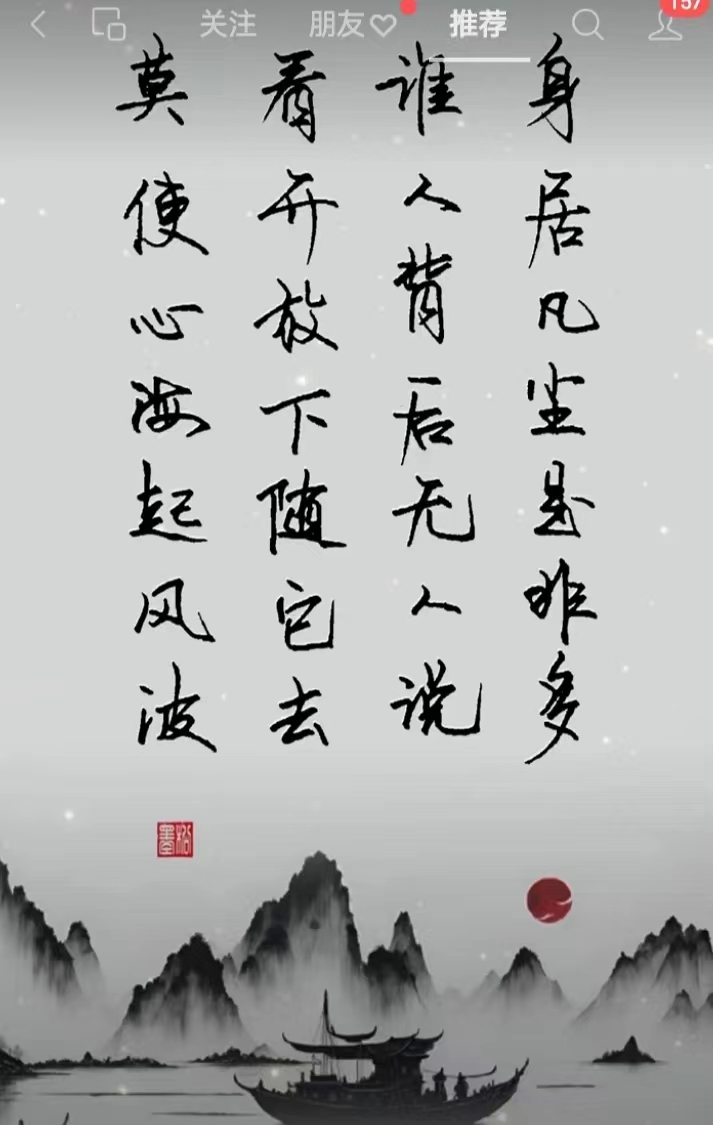 关注 朋友♡ 推荐 157
身居凡尘是非多
谁人背后无人说
看开放下随它去
莫使心海起风波